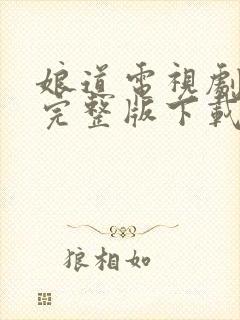 娘道電視劇
完整版下載
狼相如